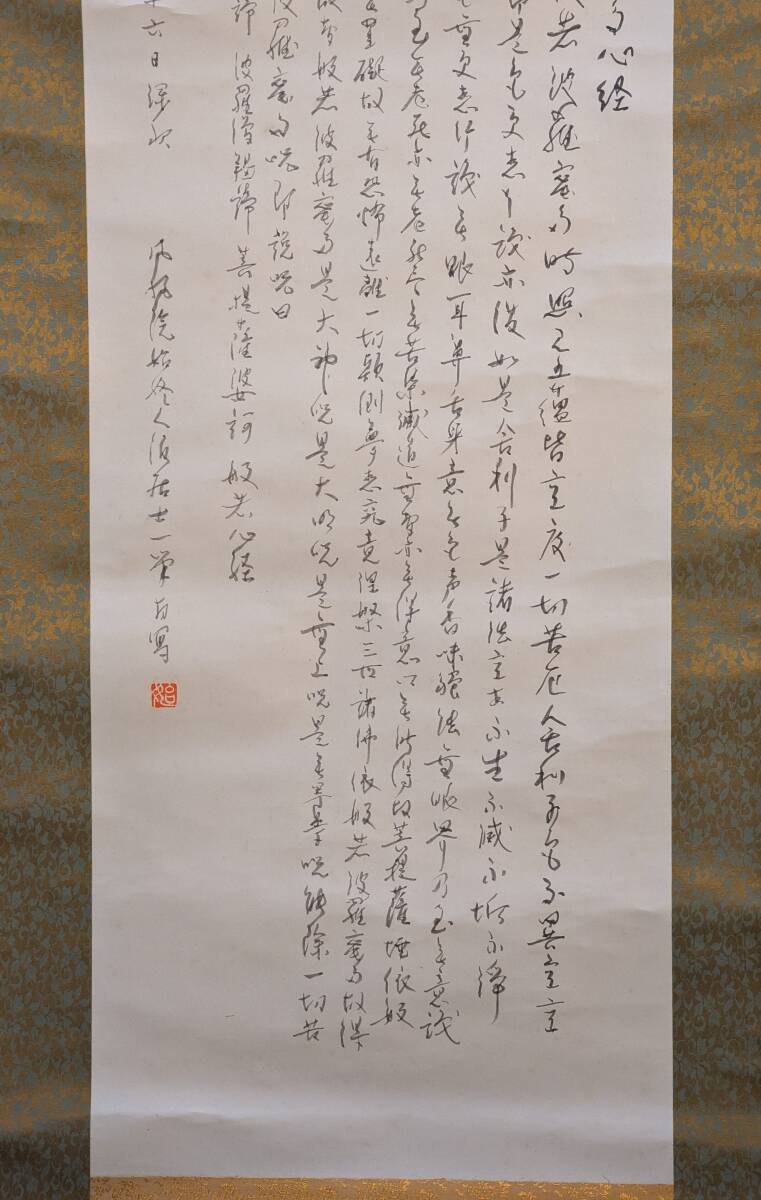 多心経
若波羅蜜多時照見五蘊皆空度一切苦厄舎利子色不異空空
是色受想行識亦復如是舎利子是諸法空相不生不滅不垢不浄
無受想行識無眼耳鼻舌身意無色声香味触法無眼界乃至無意識
至無老死亦無老死尽無苦集滅道無智亦無得以無所得故菩提薩埵依般
罣礙故無有恐怖遠離一切顛倒夢想究竟涅槃三世諸佛依般若波羅蜜多故得
故知般若波羅蜜多是大神呪是大明呪是無上呪是無等等呪能除一切苦
波羅蜜多呪即説呪曰
諦 波羅僧羯諦 菩提薩婆訶 般若心経
十六日 居士一筆写